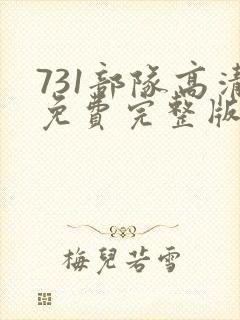 731部隊高清
免費完整版
梅兒若雪